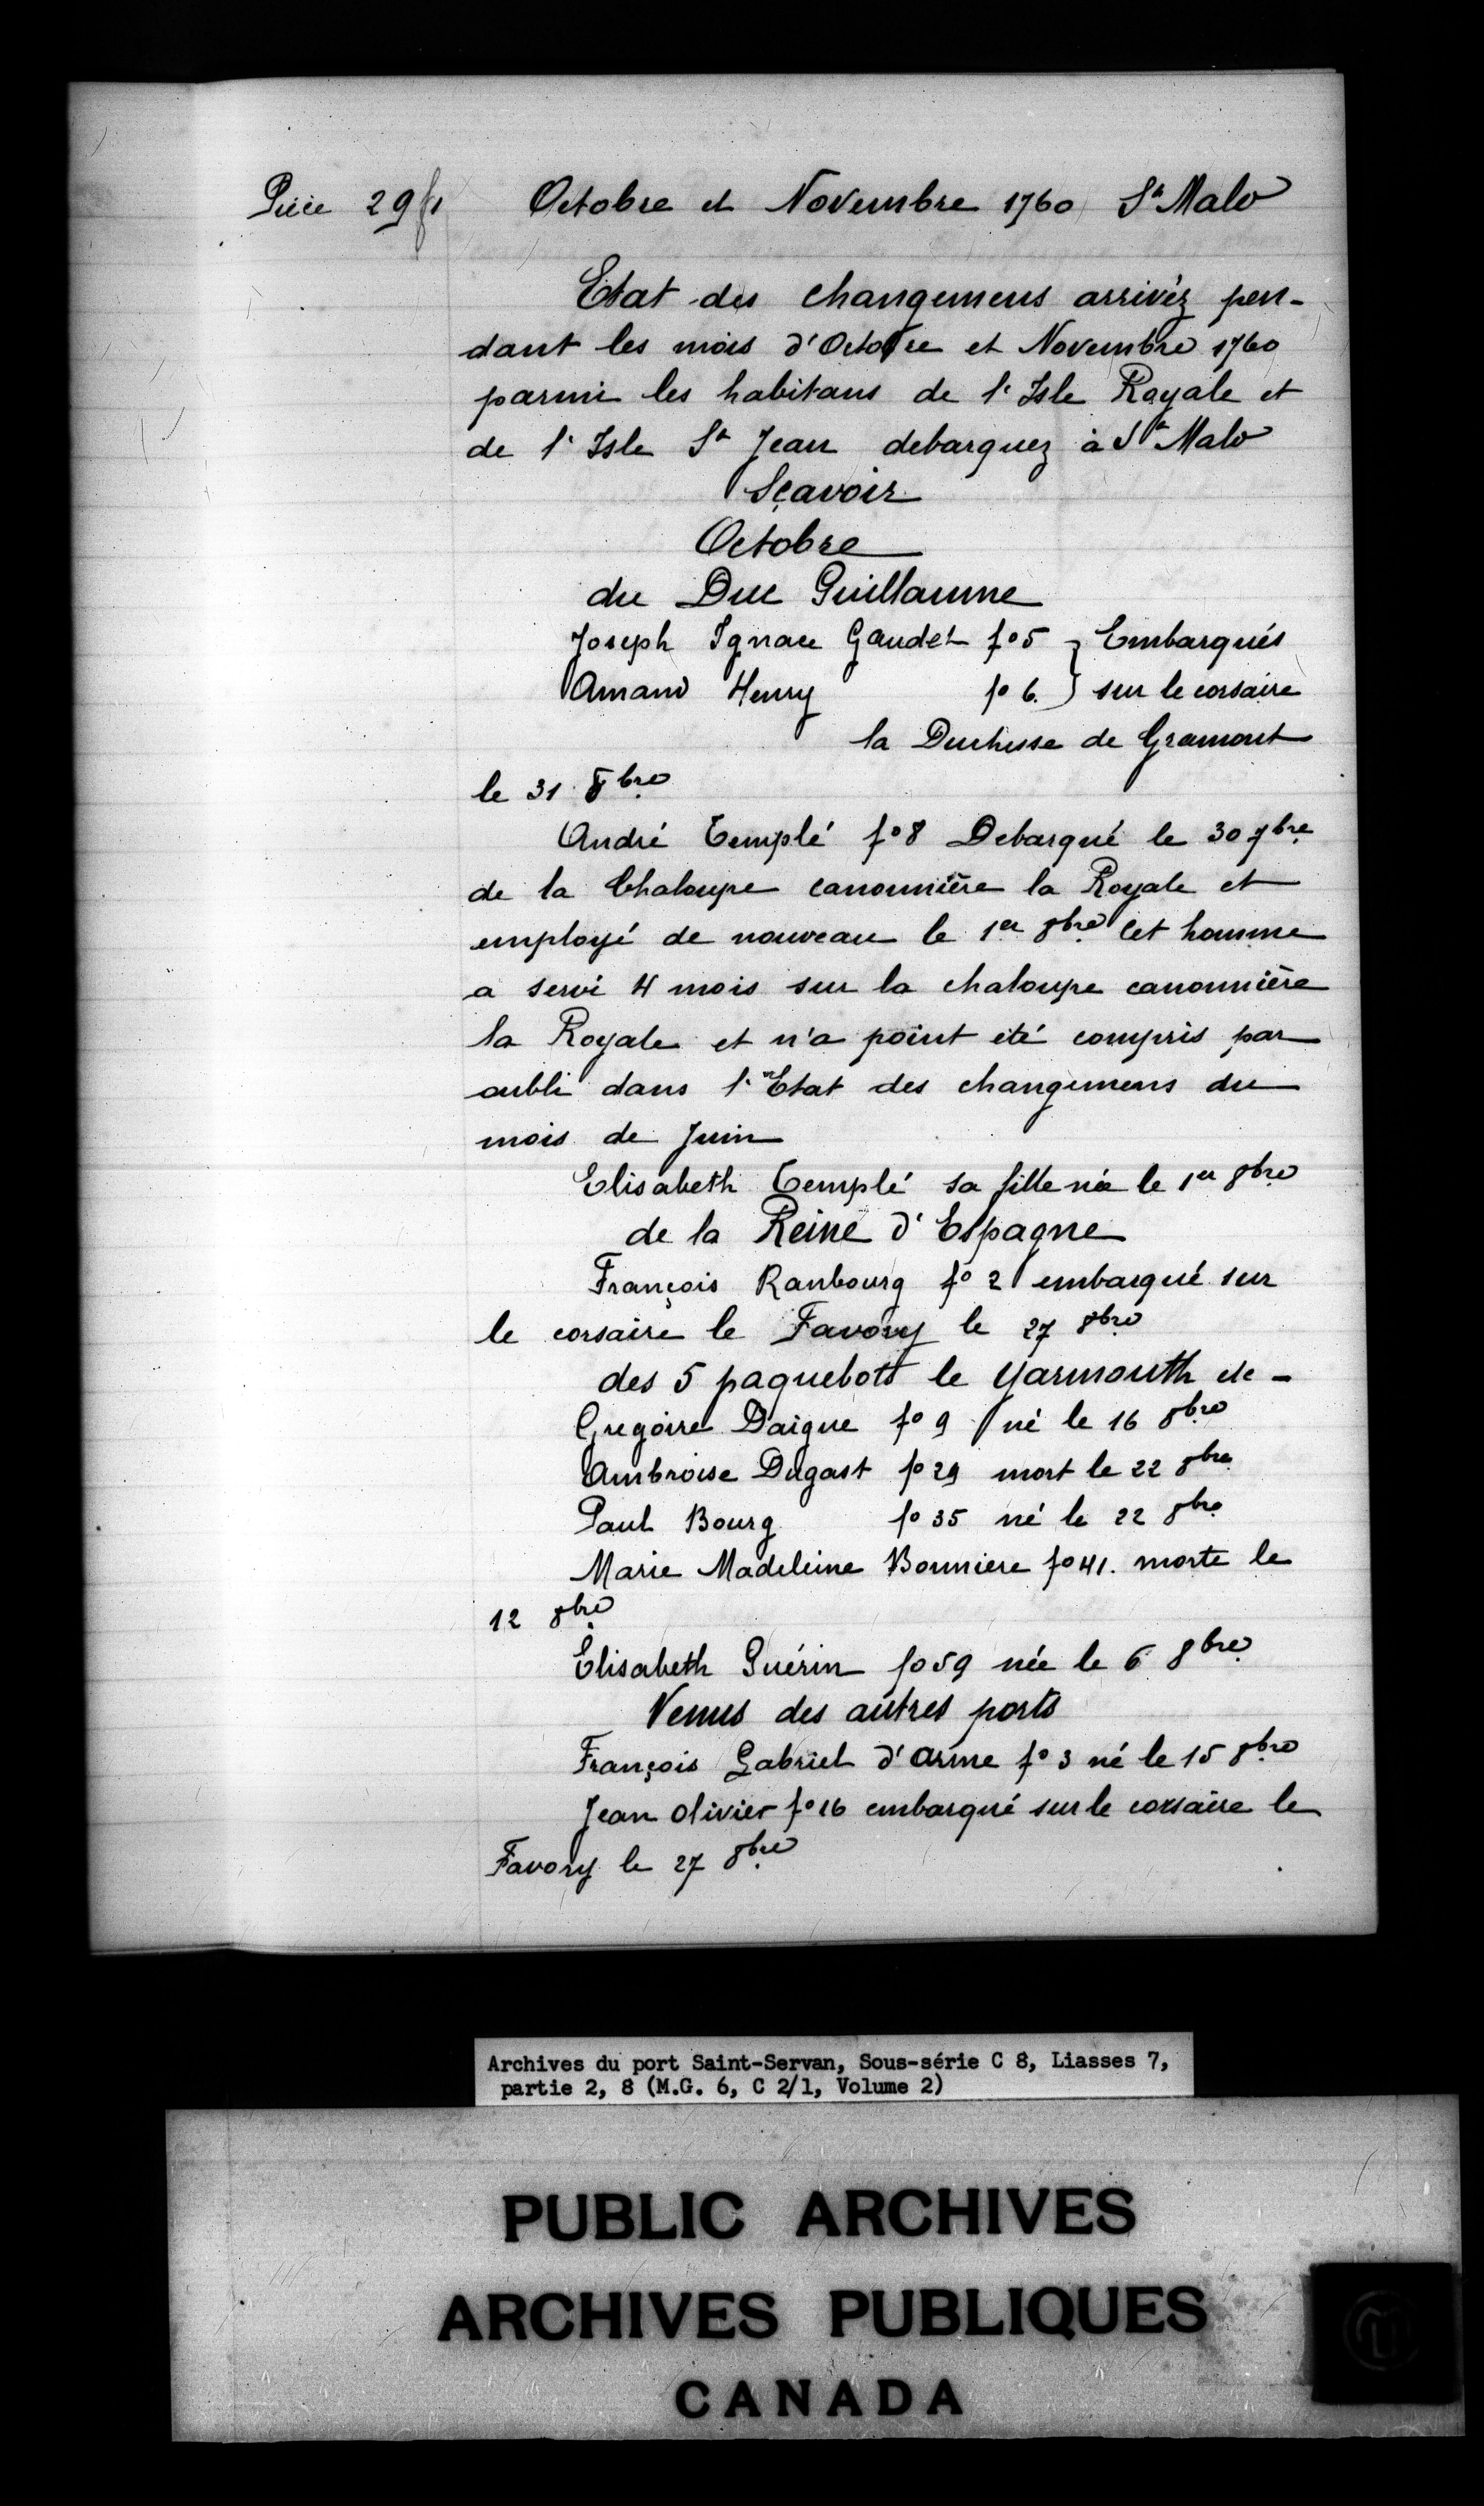 Pièce 29 Octobre et Novembre 1760 St Malo
Etat des changemens arrivéz pen-
dant les mois d'Octobre et Novembre 1760
parmi les habitans de l'Isle Royale et
de l'Isle St Jean debarquez à St Malo
Sçavoir
Octobre
du Duc Guillaume
Joseph Ignace Gaudet fo 5 } Embarqués
Amand Henry fo 6. } sur le corsaire
la Duchesse de Gramont
le 31 8bre
André Templé fo 8 Debarqué le 30 7bre
de la Chaloupe canonnière la Royale et
employé de nouveau le 1er 8bre Cet homme
a servi 4 mois sur la chaloupe canonnière
la Royale et n'a point été compris par
oubli dans l'Etat des changemens du
mois de Juin
Elisabeth Templé sa fille née le 1er 8bre
de la Reine d'Espagne
François Ranbourg fo 2 embarqué sur
le corsaire le Favory le 27 8bre
des 5 paquebots le Yarmouth etc -
Gregoire Daigue fo 9 né le 16 8bre
Ambroise Dugast fo 29 mort le 22 8bre
Paul Bourg fo 35 né le 22 8bre
Marie Madeleine Bonniere fo 41. morte le
12 8bre
Elisabeth Guérin fo 59 née le 6 8bre
Venus des autres ports
François Gabriel d'Arme fo 3 né le 15 8bre
Jean Olivier fo 16 embarqué sur le corsaire le
Favory le 27 8bre
Archives du port Saint-Servan, Sous-série C 8, Liasses 7,
partie 2, 8 (M.G. 6, C 2/1, Volume 2)
PUBLIC ARCHIVES
ARCHIVES PUBLIQUES
CANADA